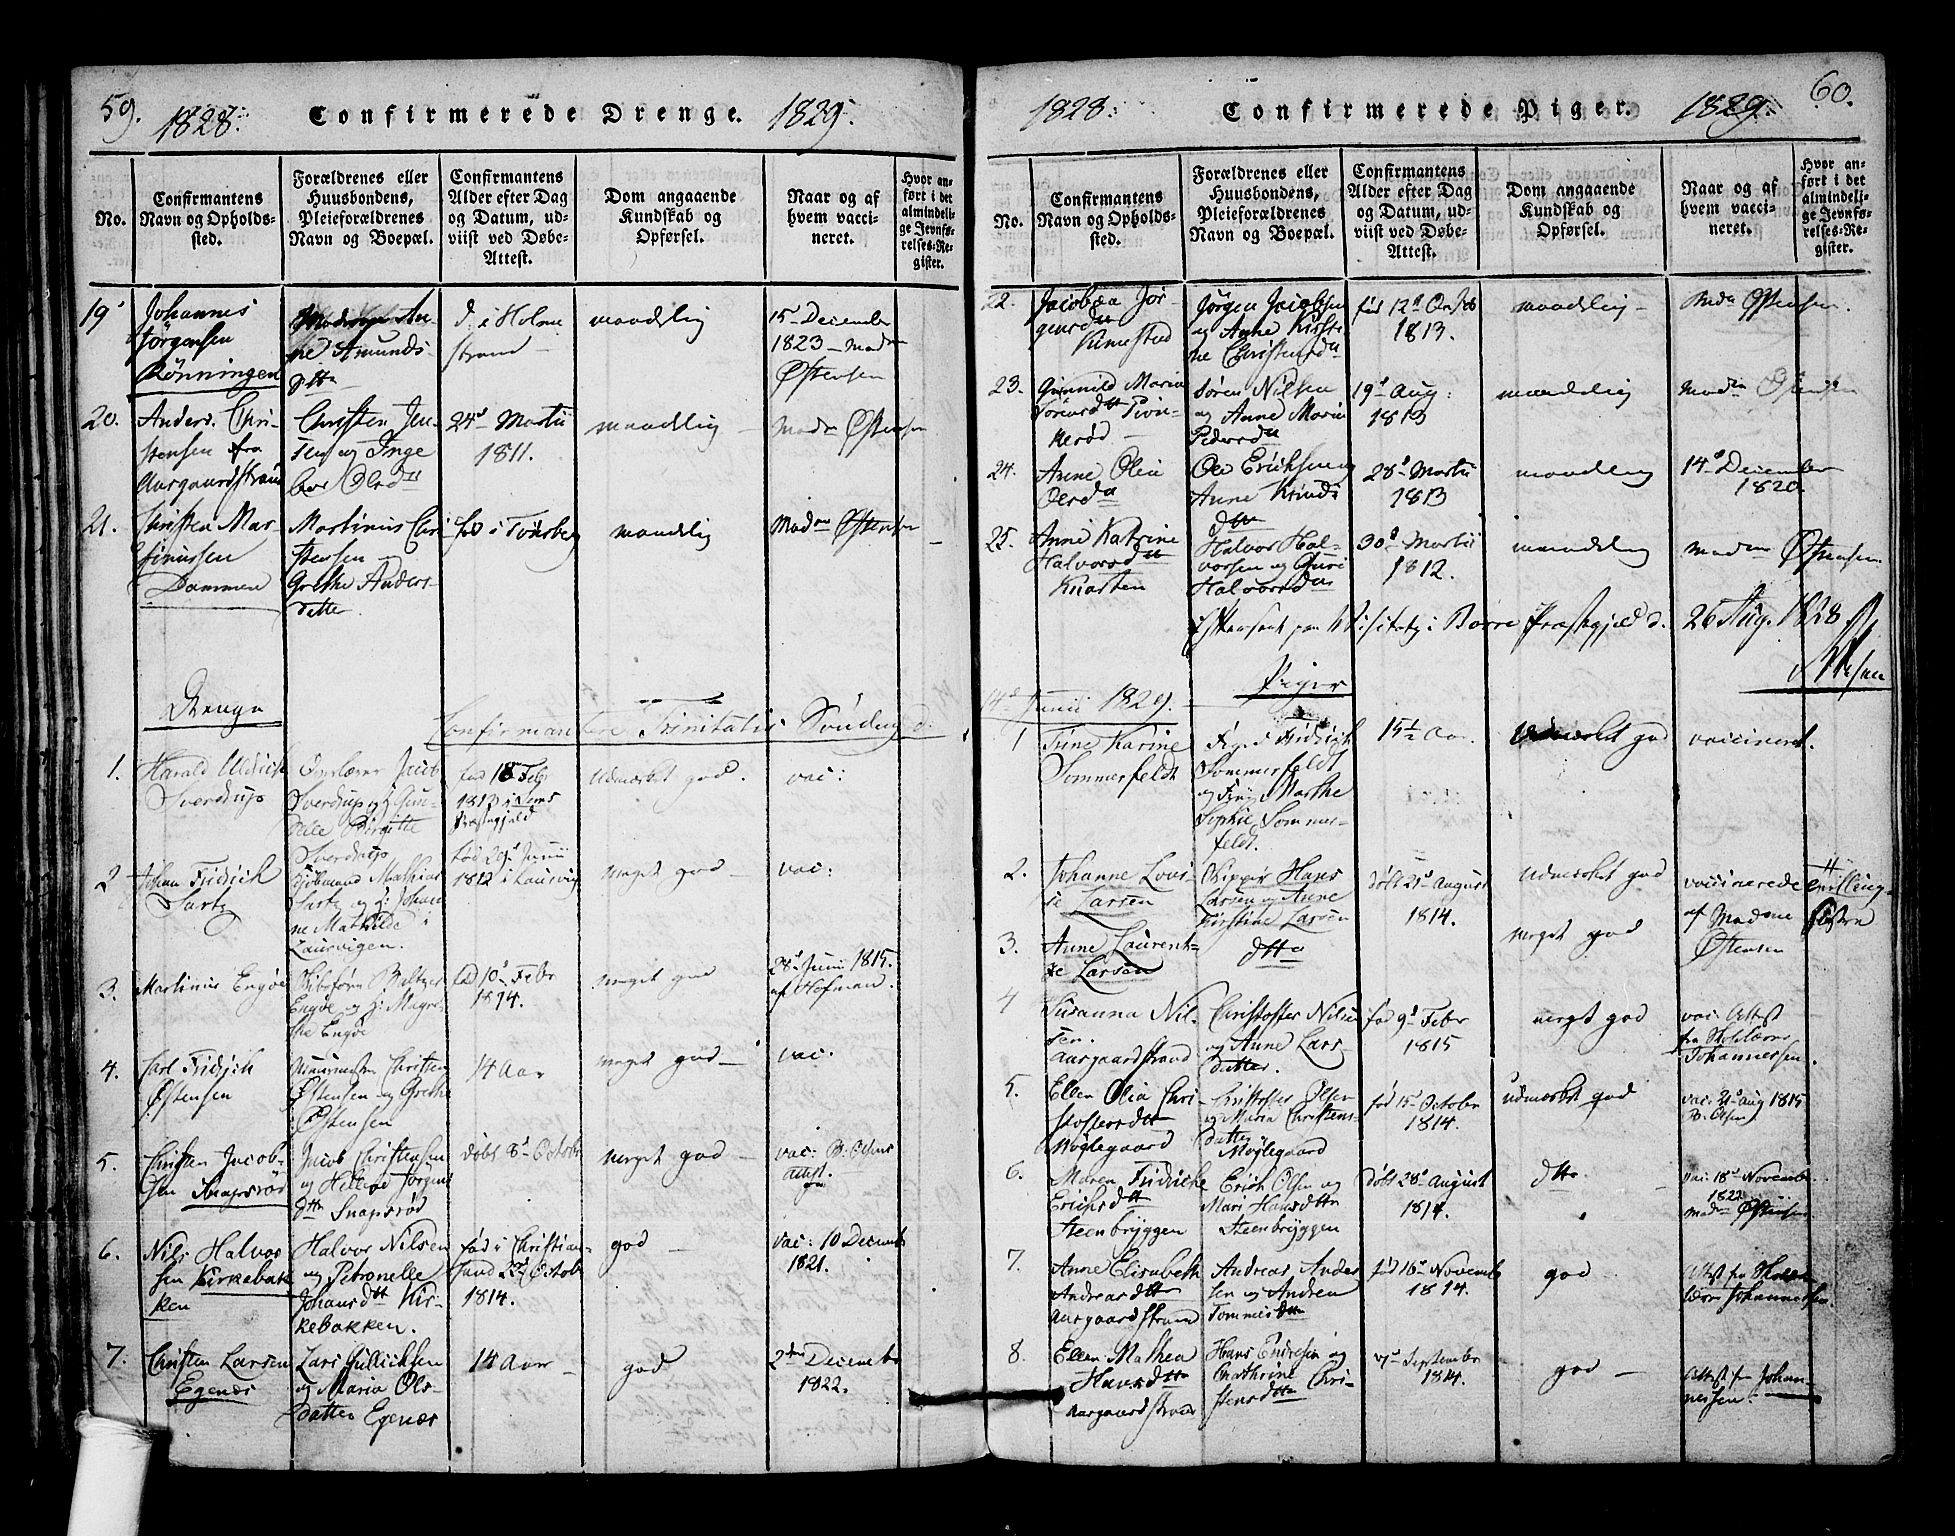 59.
1828.
Confirmerede Drenge.
1829.
No.
Confirmantens
Navn og Opholds-
sted.
Forældrenes eller
Huusbondens,
Pleieforældrenes
Navn og Boepæl.
Confirmantens
Alder efter Dag
og Datum, ud-
viist ved Døbe-
Attest.
Dom angaaende
Kundskab og
Opførsel.
Naar og af
hvem vacci-
neret.
Hvor an-
ført i det
almindeli-
ge Jevnfø-
relses-Re-
gister.
19
Johannes
Jörgensen
Rönningen
An-
ne Amunds
dttr
d. i Holme
strand
maadelig
15 December
1823 - Mad
Østensen
20.
Anders Chri-
stensen fra
Aasgaardstrand
Christen Jen-
sen og Inge
bor Olsd
24d Martii
1811.
maadelig
Madm Østensen
21.
Christen Mar-
tinussen
Dammen
Martinus Chri
stensen og
Grethe Anders-
datter
fød i Tönsberg
maadelig
Madm Østensen
Drenge
Confirmantere Trinitatis Söndag d.
1.
Harald Uldrick
Sverdrup
Overlærer Jacob
Sverdrup og H. Gun-
delle Birgitte
Sverdrup
fød 18 Febr
1813 i Sems
Præstegjeld
udmærket god.
vac:
2
Johan Fridrich
Sartz
Kjöbmand Mathias
Sartz og H: Johan
ne Mathilde i
Laurvigen.
fød 29d Junii
1812 i Laurvig
meget god
vac:
3.
Martinus Engöe
Skibsförer Baltzer
Engöe og H: Magre-
the Engöe
fød 10d Febr
1814.
meget god
28d Junii 1815.
af Hofman.
4.
Carl Fridrich
Østensen
Christen
Østensen og Grethe
Østensen
14 Aar
meget god
vac.
5.
Christen Jacob-
sen Snapsröd
Jacob Christensen
og Helleve Jörgens
dttr Snapsröd
döbt 8d Octobr
meget god
vac: B: Olsens
Attest
6.
Nils Halvor
sen Kirkebak
ken
Halvor Nilsen
og Petronelle
Johansdtt Kir-
kebakken.
fød i Christian-
sand 22d Octob
1814.
god
vac: 10 Decemb
1821.
7.
Christen Larsen
Egenæs
Lars Gullichsen
og Maria Ols-
datter Egenæs
14 Aar
god
2den Decemb
1822.
1828.
Confirmerede Piger.
1829.
60.
No.
Confirmantens
Navn og Opholds-
sted.
Forældrenes eller
Huusbondens,
Pleieforældrenes
Navn og Boepæl.
Confirmantens
Alder efter Dag
og Datum, ud-
viist ved Døbe-
Attest.
Dom angaaende
Kundskab og
Opførsel.
Naar og af
hvem vacci-
neret.
Hvor an-
ført i det
almindeli-
ge Jevnfø-
relses-Re-
gister.
22.
Jacobæa Jör
gensd
Kimestad
Jörgen Jacobsen
og Anne Kirsti
ne Christensd
fød 12d Octob
1813.
maadelig
Madm Østensen.
23.
Gunnild Maria
Sörensdtt
Sören Nilsen
og Anne Maria
Pedersd
19d Aug:
1813
maadelig
Madm Østensen
24.
Anne Olia
Olesd
Ole Ericksen og
Anne
dttr
28d Martii
1813
maadelig
14d December
1820
25.
Anne Katrine
Halvorsdtt
Knatten
Halvor Hal-
vorsen og Guri
Halvorsd
30d Martii
1812.
maadelig
Madm Østensen
Efterseet paa Visitats i Borre Præstegjæld d. 26 Aug. 1828
14d Junii 1829.
Piger
1
Trine Karine
Sommerfeldt
Foged Fridrich
Sommerfeldt
og Marthe
Sophie Sommer-
feldt.
15½ Aar.
Udmærket god
vaccineret.
2.
Johanne Lovi-
se Larsen
Skipper Hans
Larsen og Anne
Kirstine Larsen
döbt 21d August
1814.
udmærket god
vaccinerede
af Madme
Østensen
Tvilling-
Søstre
3.
Anne Laurent-
ze Larsen
dtto
meget god
4
Susanna Nil-
sen.
Aasgaardstrand
Christoffer Nilsen
og Anne Lars-
datter.
fød 9d Febr
1815
meget god
vac: Attest
fra Skolelærer
Johannessen.
5.
Ellen Olia Chri-
stoffersdtt
Möglegaard
Christoffer Olsen
og Maria Christens-
datter
Möglegaard
fød 15 October
1814.
udmærket god
vac: 21 Aug 1815
B. Olsen
6.
Maren Fridricke
Erichsdtt
Steenbryggen
Erich Olsen og
Mari Hansdttr
Steenbryggen
döbt 28d August
1814.
dtto
vac: 18d Novemb
1822
Madm Østensen
7.
Anne Elisabeth
Andreasdtt
Aasgaardstrand
Andreas Ander
sen og Andrea
Tommesdtt
fød 16d Novemb
1814.
god
Attest fra Skole
lærer Johannessen.
8.
Ellen Mathea
Hansdtt
Aasgaardstrand
Hans Endresen og
Chathrine Chri-
stensdtt
17d September
1814.
god
Attest fr Johan-
nessen.